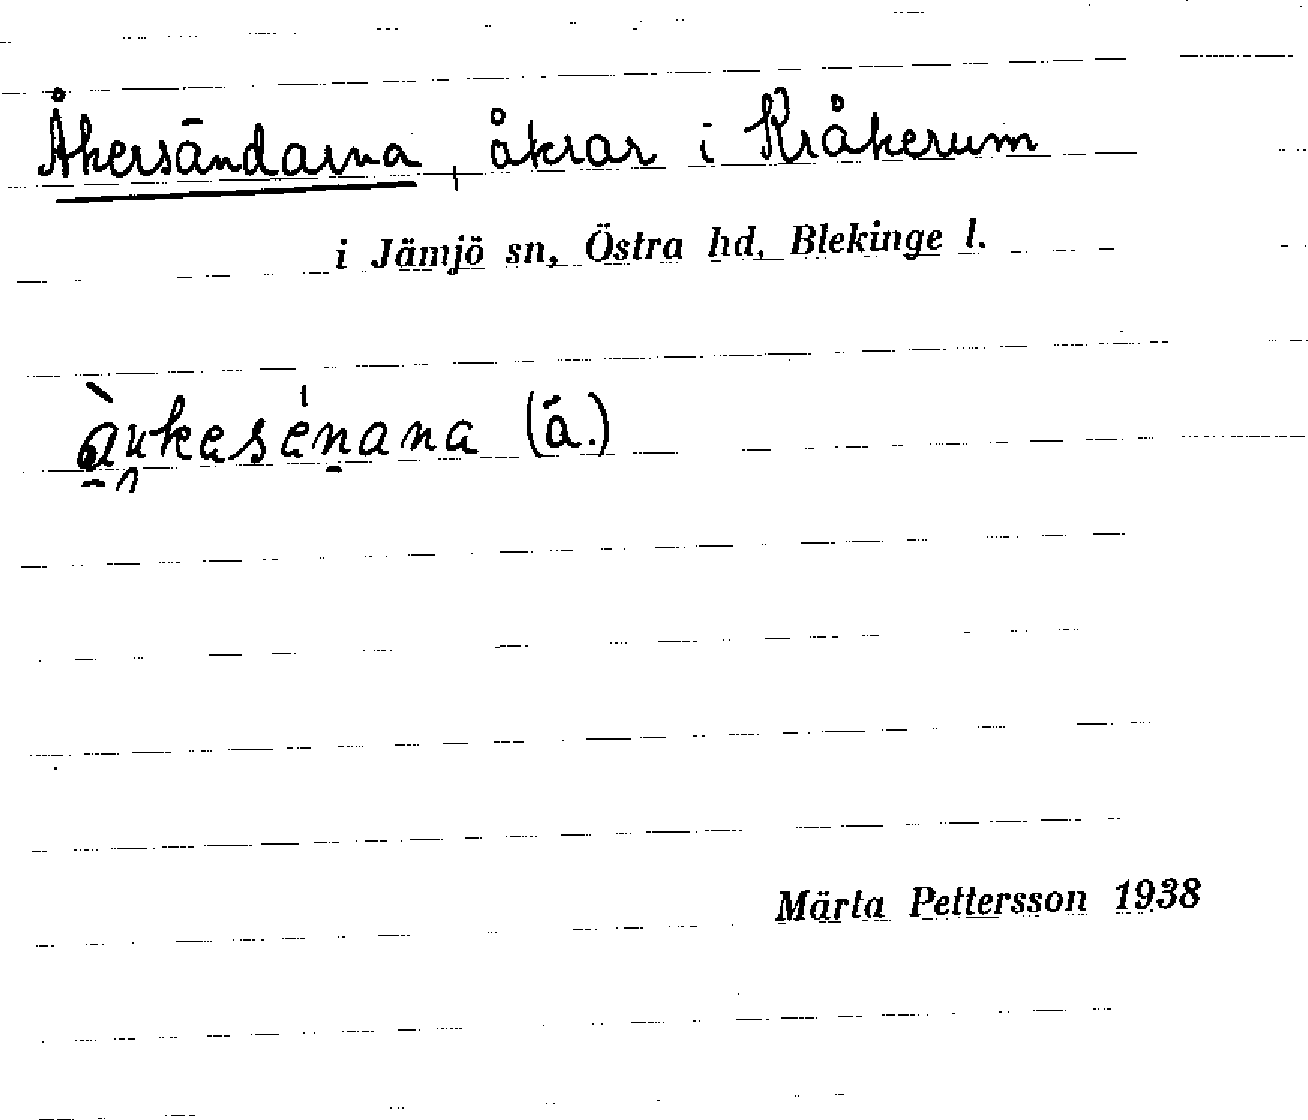 Åkersändarna, åkrar i Kråkerum
i Jämjö sn, Östra hd, Blekinge l.
(ä.)
Märta Pettersson 1938